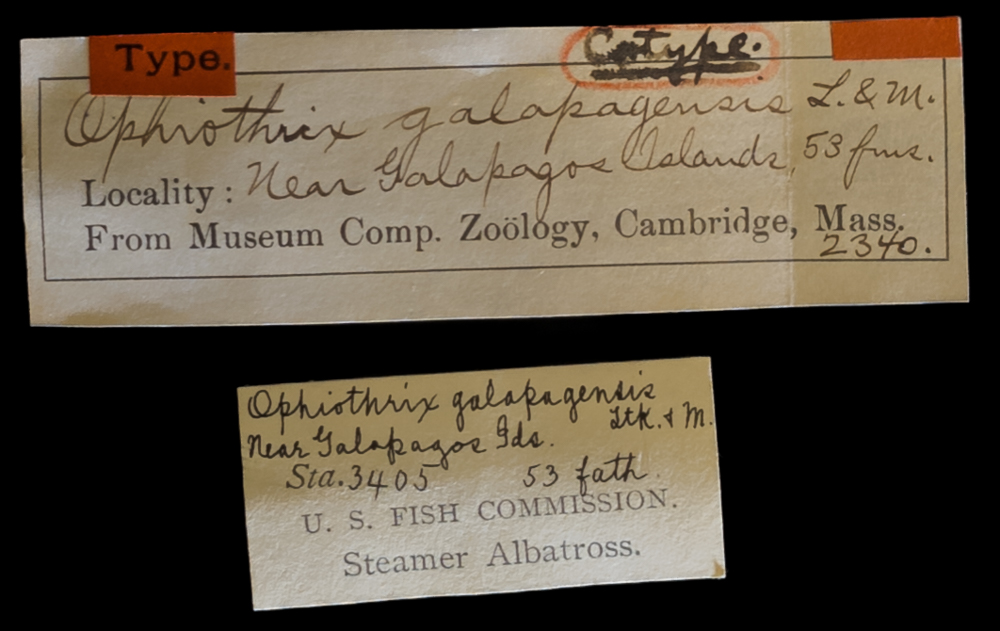 Type.
Cotype.
Ophiothrix galapagensis L. & M.
Locality : Near Galapagos Islands, 53 fms.
From Museum Comp. Zoölogy, Cambridge, Mass.
2340.
Ophiothrix galapagensis
Ltk. & M.
Near Galapagos Ids.
Sta. 3405 53 fath.
U. S. FISH COMMISSION.
Steamer Albatross.